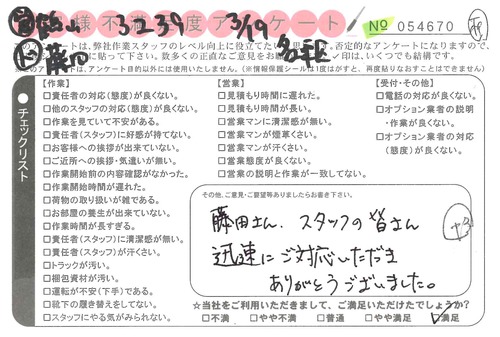 様不満足度アンケート
3239 3/19
№ 054670
のアンケートは、弊社作業スタッフのレベル向上に役立てたい
否定的なアンケートになりますので、
に貼って下さい。数多くの正直なご意見をお
印は、いくつでも結構です。
アンケート目的以外には使用いたしません。(※情報保護シール
は1度はがすと、再度貼りなおすことはできません)
チェックリスト
【作業】
□責任者の対応(態度)が良くない。
□他のスタッフの対応(態度)が良くない。
□作業を見ていて不安がある。
□責任者(スタッフ)に好感が持てない。
□お客様への挨拶が出来ていない。
□ご近所への挨拶・気遣いが無い。
□作業開始前の内容確認がなかった。
□作業開始時間が遅れた。
□荷物の取り扱いが雑である。
□お部屋の養生が出来ていない。
□作業時間が長すぎる。
□責任者(スタッフ)に清潔感が無い。
□責任者(スタッフ)が汗くさい。
□トラックが汚い。
□梱包資材が汚い。
□運転が不安(下手)である。
□靴下の履き替えをしてない。
□スタッフにやる気がみられない。
【営業】
□見積もり時間に遅れた。
□見積もり時間が長い。
□営業マンに清潔感が無い。
□営業マンが煙草くさい。
□営業マンが汗くさい。
□営業態度が良くない。
□営業の説明と作業が一致してない。
【受付・その他】
□電話の対応が良くない。
□オプション業者の説明
・作業が良くない。
□オプション業者の対応
(態度)が良くない。
その他、ご意見・ご要望等ありましたらお書き下さい。
藤田さん、スタッフの皆さん
迅速にご対応いただき
ありがとうございました。
☆当社をご利用いただきまして、ご満足いただけたでしょうか?
□不満 □やや不満 □普通 □やや満足 ☑満足